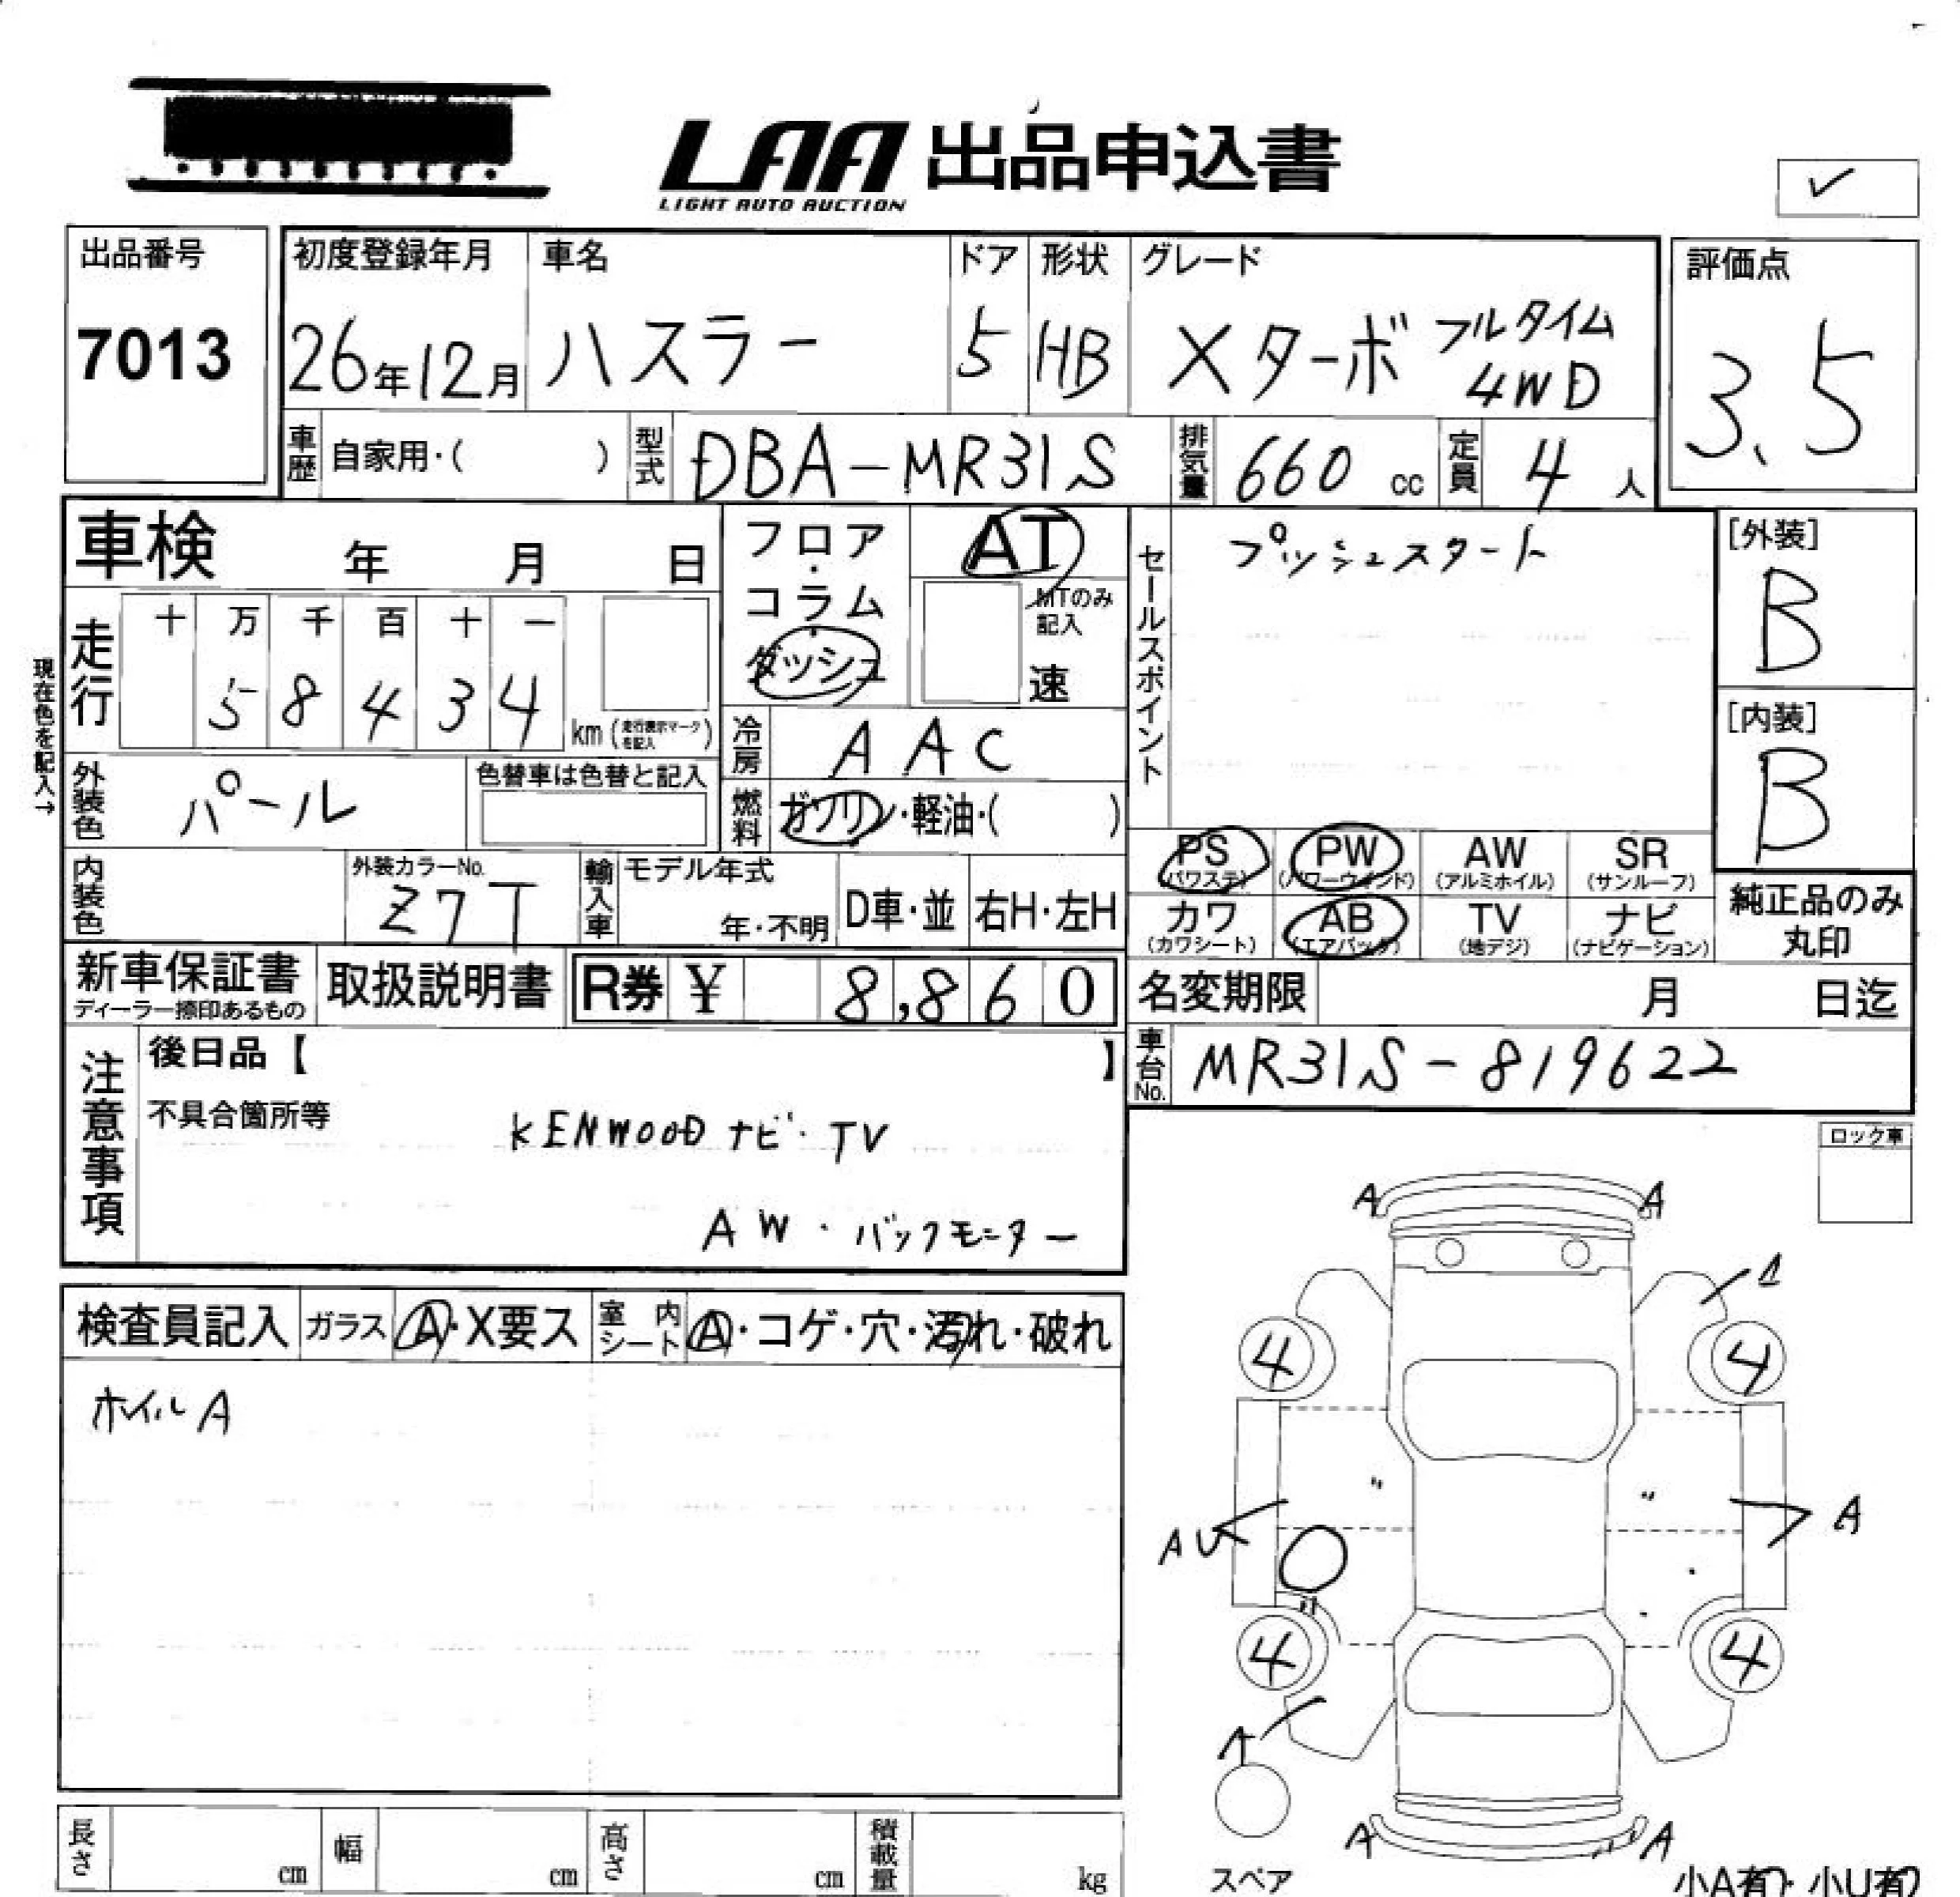 LAA 出品申込書
LIGHT AUTO AUCTION
✓
出品番号
7013
初度登録年月
26年12月
車名
ハスラー
ドア
5
形状
HB
グレード
Xターボ フルタイム
4WD
評価点
3.5
車歴 自家用・( )
型式 DBA-MR31S
排気量 660 cc
定員 4 人
車検 年 月 日
現在色を記入→
走行
十 万 千 百 十 一
5 8 4 3 4
km (走行表示マークを記入)
フロア・コラム・ダッシュ
AT
MTのみ
記入
速
冷房 AAC
燃料 ガソリン・軽油・( )
外装色 パール
色替車は色替と記入
内装色
外装カラーNo.
Z7T
輸入車
モデル年式
年・不明
D車・並
右H・左H
セールスポイント
プッシュスタート
[外装]
B
[内装]
B
PS
(パワステ)
PW
(パワーウインド)
AW
(アルミホイル)
SR
(サンルーフ)
カワ
(カワシート)
AB
(エアバック)
TV
(地デジ)
ナビ
(ナビゲーション)
純正品のみ
丸印
新車保証書
ディーラー捺印あるもの
取扱説明書
R券 ¥ 8,860
名変期限 月 日迄
車台No. MR31S-819622
注意事項
後日品【 】
不具合箇所等
KENWOOD ナビ・TV
AW・バックモニター
ロック車
検査員記入
ガラス A・X要ス
室内シート A・コゲ・穴・汚れ・破れ
ホイルA
A A
A
4 4
〃 〃
AU A
〃
4 4
A
A A
スペア
小A有り・小U有り
長さ cm
幅 cm
高さ cm
積載量 kg